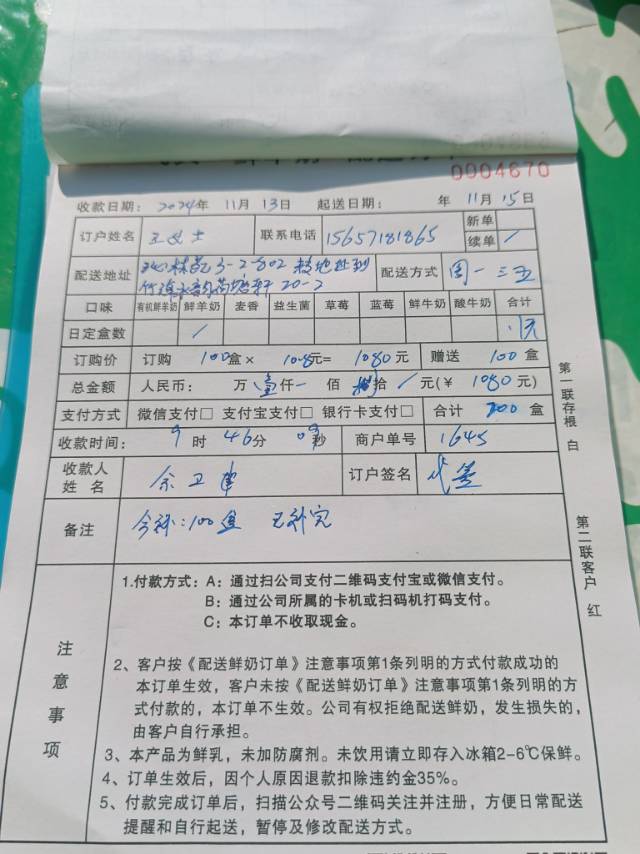 0004670
收款日期: 2024年 11月 13日 起送日期: 年 11月 15日
订户姓名 王女士 联系电话 15657181865 新单
续单 /
配送地址 3-2-802
20-2 配送方式 周一 三 五
口味 有机鲜羊奶 鲜羊奶 麦香 益生菌 草莓 蓝莓 鲜牛奶 酸牛奶 合计
日定盒数 /
订购价 订购 100盒× 10.8元= 1080元 赠送 100盒
总金额 人民币: 万 壹仟 佰 捌拾 / 元(¥ 1080元)
支付方式 微信支付□ 支付宝支付□ 银行卡支付□ 合计 200盒
收款时间: 9时 46分 09秒 商户单号 1645
收款人姓名 余卫 订户签名 代签
备注 100 已补完
第一联存根 白
第二联客户 红
注意事项
1.付款方式: A: 通过扫公司支付二维码支付宝或微信支付。
B: 通过公司所属的卡机或扫码机打码支付。
C: 本订单不收取现金。
2、客户按《配送鲜奶订单》注意事项第1条列明的方式付款成功的
本订单生效，客户未按《配送鲜奶订单》注意事项第1条列明的方
式付款的，本订单不生效。公司有权拒绝配送鲜奶，发生损失的，
由客户自行承担。
3、本产品为鲜乳，未加防腐剂。未饮用请立即存入冰箱2-6℃保鲜。
4、订单生效后，因个人原因退款扣除违约金35%。
5、付款完成订单后，扫描公众号二维码关注并注册，方便日常配送
提醒和自行起送，暂停及修改配送方式。